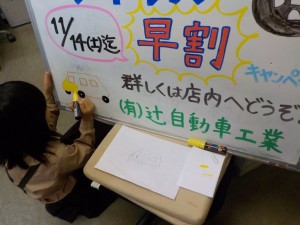 11/14(土)迄
早割
キャンペ
詳しくは店内へどうぞ
(有)辻自動車工業